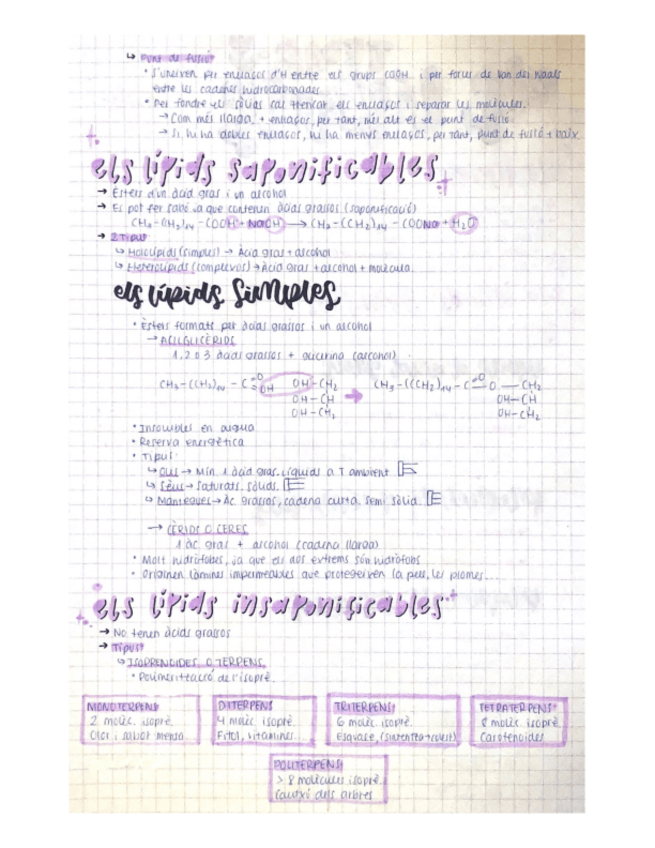 ↳ Punt de fusió
• S'uneixen per enllaços d'H entre els grups COOH i per forces de Van der Waals
entre les cadenes hidrocarbonades.
• Per fondre els sòlids cal trencar els enllaços i separar les molècules.
→ Com més llarga, + enllaços, per tant, més alt és el punt de fusió.
→ Si hi ha dobles enllaços, hi ha menys enllaços, per tant, punt de fusió + baix
els lípids saponificables
→ Èsters d'un àcid gras i un alcohol
→ Es pot fer sabó ja que contenen àcids grassos (saponificació)
CH3-(CH2)14-COOH + NaOH → CH3-(CH2)14-COONa + H2O
→ 2 Tipus
↳ Hololípids (simples) → Àcid gras + alcohol
↳ Heterolípids (complexos) → Àcid gras + alcohol + molècula
els lípids simples
• Èsters formats per àcids grassos i un alcohol
→ ACILGLICÈRIDS
1, 2 o 3 àcids grassos + glicerina (alcohol)
CH3-((CH2)14-C=O OH OH-CH2 → CH3-((CH2)14-C=O O-CH2
OH-CH OH-CH
OH-CH2 OH-CH2
• Insolubles en aigua
• Reserva energètica
• Tipus:
↳ Olis → Mín. 1 àcid gras. Líquids a T ambient
↳ Sèus → Saturats. Sòlids.
↳ Mantegues → Àc. grassos, cadena curta. Semi sòlid.
→ CÈRIDS O CERES
1 àc. gras + alcohol (cadena llarga)
• Molt hidròfobes, ja que els dos extrems són hidròfobs
• Originen làmines impermeables que protegeixen la pell, les plomes...
els lípids insaponificables
→ No tenen àcids grassos
→ Tipus
↳ ISOPRENOIDES O TERPENS
• Polimerització de l'isoprè
MONOTERPENS DITERPENS TRITERPENS TETRATERPENS
2 molèc. isoprè 4 molèc. isoprè 6 molèc. isoprè 8 molèc. isoprè
Olor i sabor menta Fitol, vitamines... Carotenoides
POLITERPENS
> 8 molècules isoprè
Cautxú dels arbres